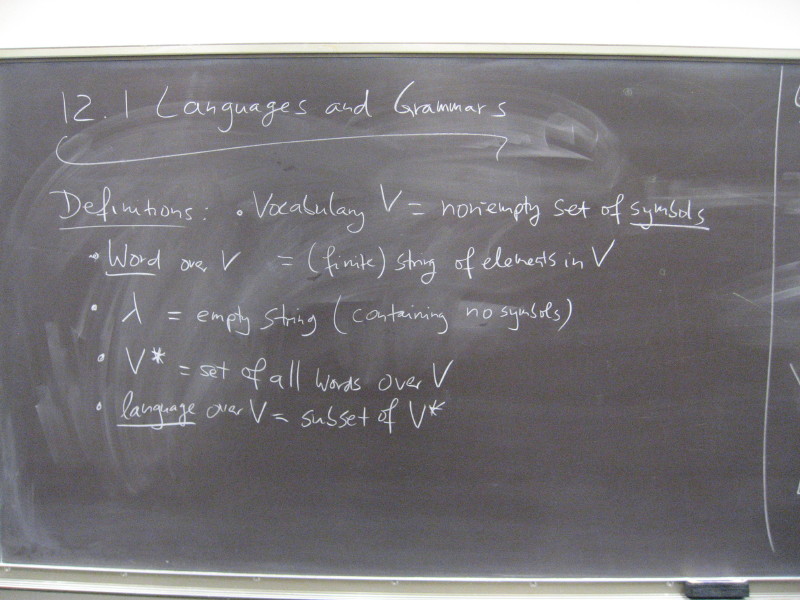 12.1 Languages and Grammars
Definitions: • Vocabulary V = nonempty set of symbols
• Word over V = (finite) string of elements in V
• λ = empty string (containing no symbols)
• V* = set of all words over V
• language over V = subset of V*